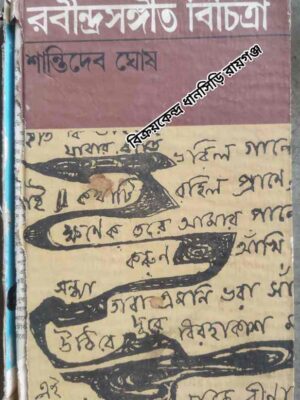 রবীন্দ্রসঙ্গীত বিচিত্রা
শান্তিদেব ঘোষ
বিক্রয়কেন্দ্র ধানসিড়ি রায়গঞ্জ
যাবার
গানে
কথাটি বহিল প্রাণে
ক্ষণেক তরে আমার পানে
করুণ আঁখি
সন্ধ্যা
তারা এমনি ভরা সাঁ
উঠিবে দূরে বিরহাকাশ
এই